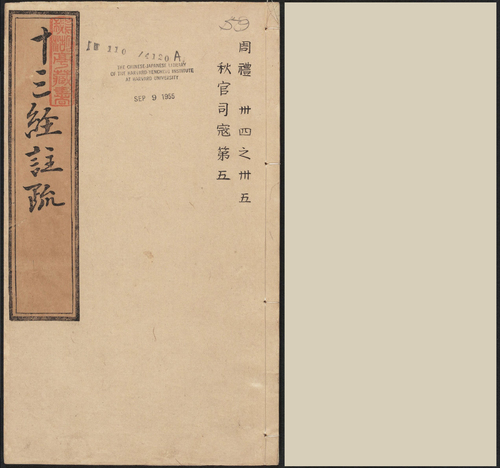 59
周禮 卅四之卅五
秋官司寇第五
THE CHINESE-JAPANESE LIBRARY
OF THE HARVARD-YENCHING INSTITUTE
AT HARVARD UNIVERSITY
SEP 9 1955
十三經註疏